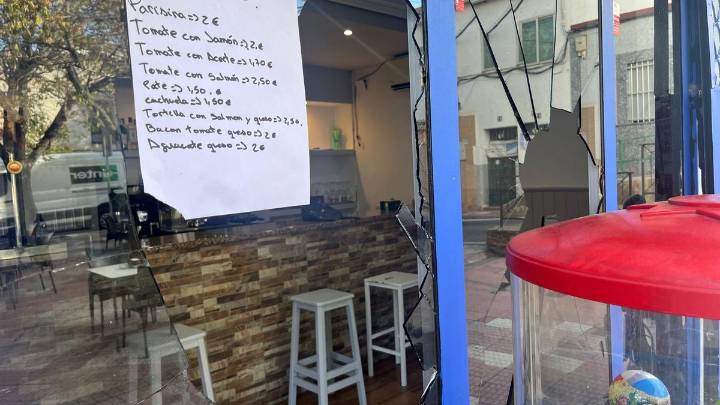 Parisina => 2 €
Tomate con Jamón => 2,€
Tomate con Aceite => 1,70 €
Tomate con Salmón => 2,50 €
Pate => 1,50. €
cachuela => 1,50 €
Tortilla con Salmon y queso => 2,50.
Bacon tomate queso => 2 €
Aguacate queso => 2 €
inter